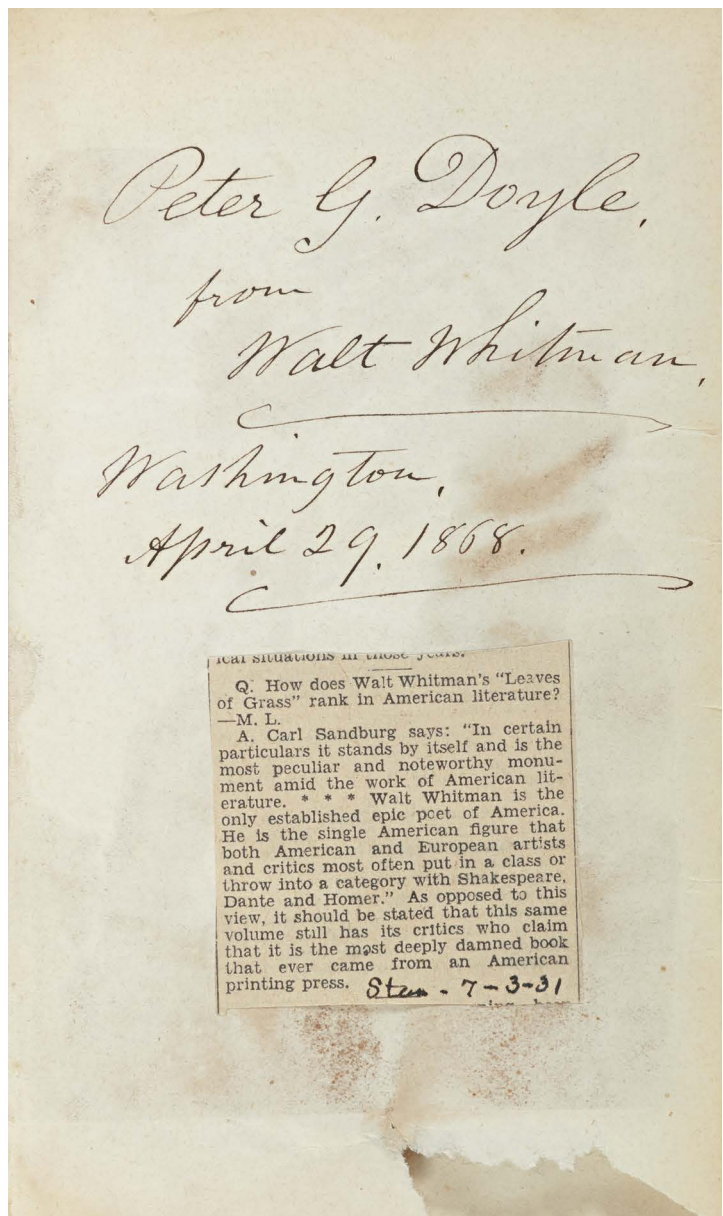 Peter G. Doyle,
from
Walt Whitman,
Washington,
April 29. 1868.
ical situations in those years.
Q. How does Walt Whitman's "Leaves
of Grass" rank in American literature?
—M. L.
A. Carl Sandburg says: "In certain
particulars it stands by itself and is the
most peculiar and noteworthy monu-
ment amid the work of American lit-
erature. * * * Walt Whitman is the
only established epic poet of America.
He is the single American figure that
both American and European artists
and critics most often put in a class or
throw into a category with Shakespeare,
Dante and Homer." As opposed to this
view, it should be stated that this same
volume still has its critics who claim
that it is the most deeply damned book
that ever came from an American
printing press. Star - 7-3-31